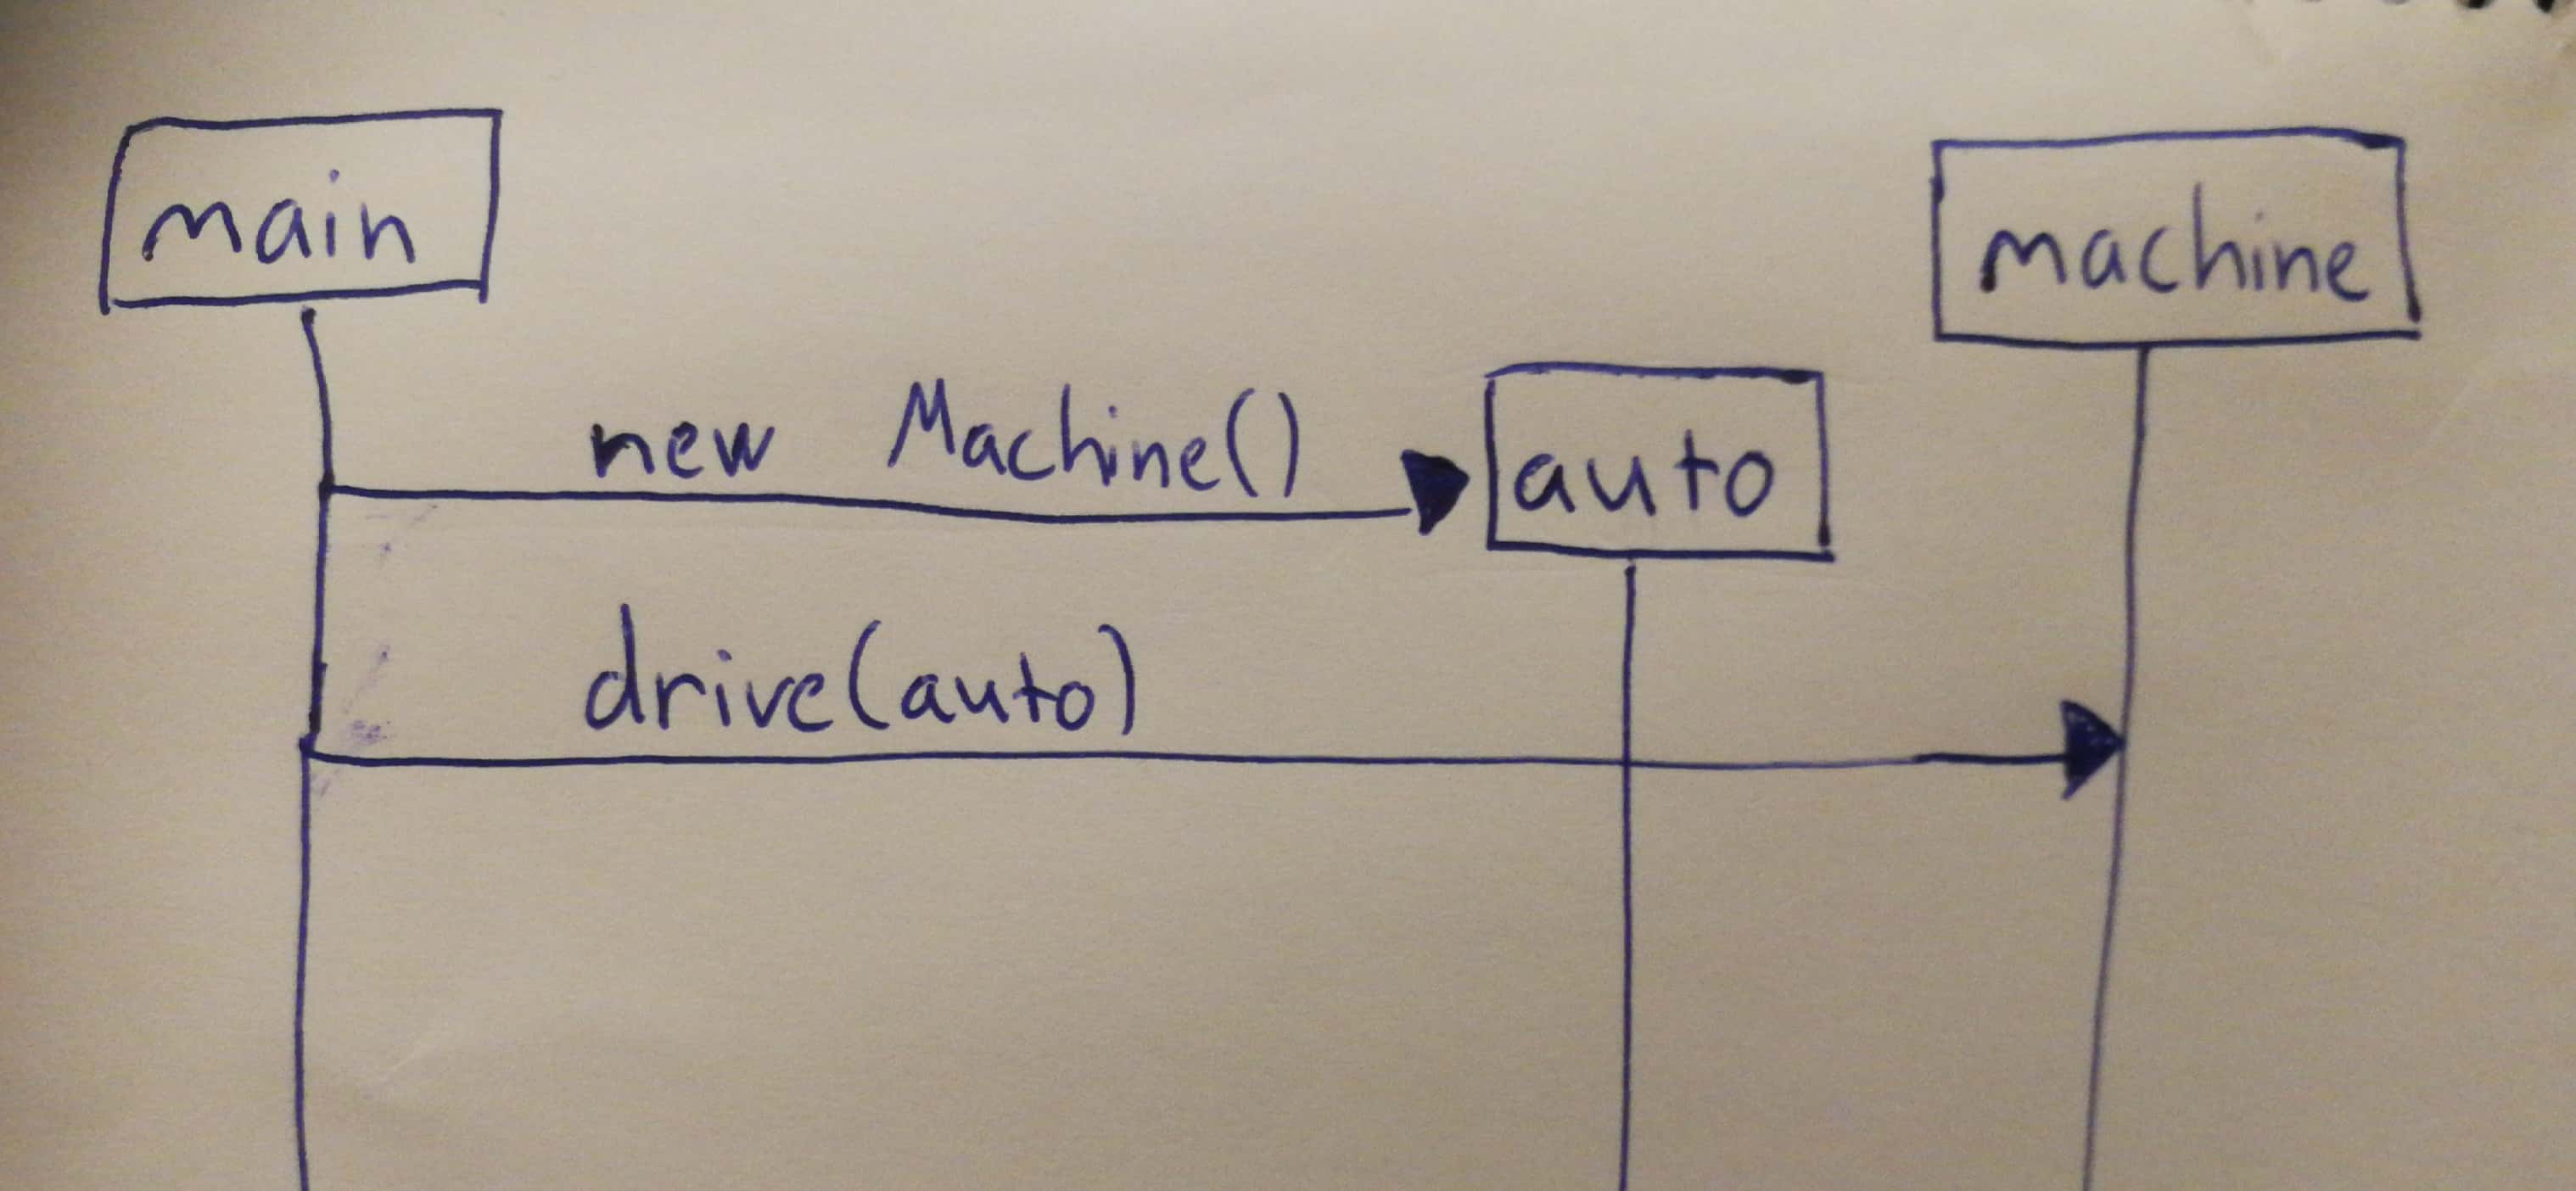 main
machine
new Machine()
auto
drive(auto)